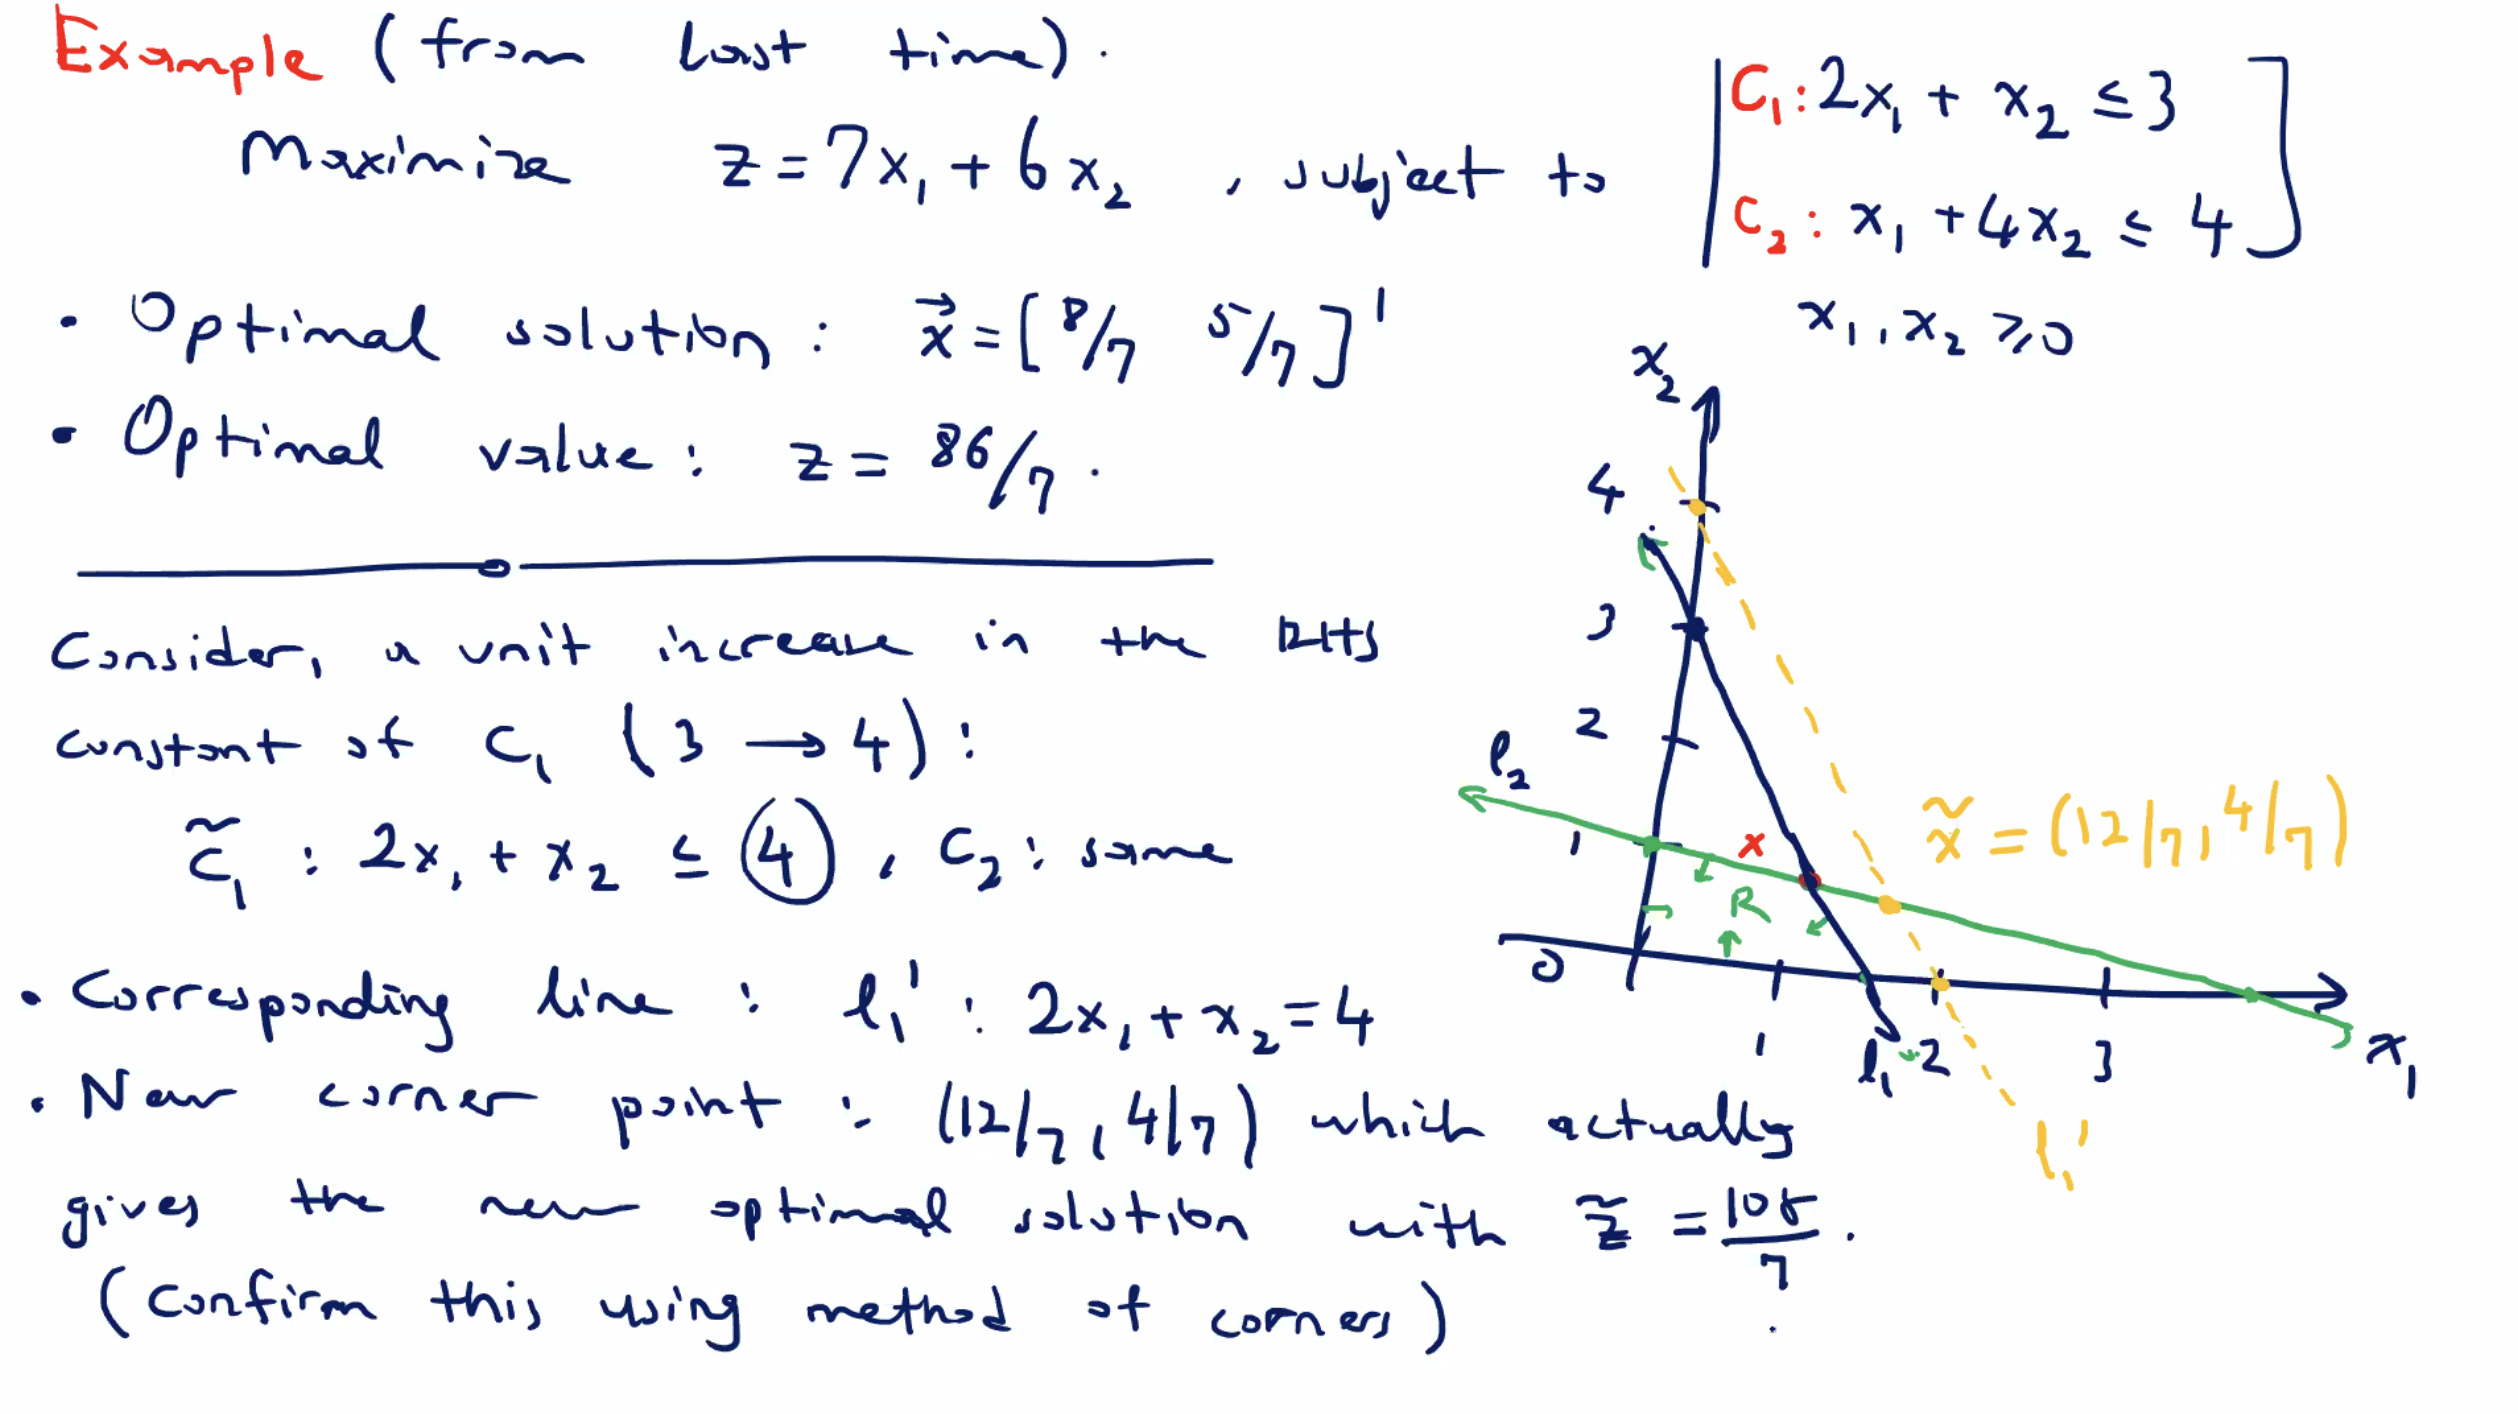 Example (from last time).
Maximize z = 7x₁ + 6x₂, subject to
C₁: 2x₁ + x₂ ≤ 3
C₂: x₁ + 4x₂ ≤ 4
x₁, x₂ ≥ 0
• Optimal solution: x⃗ = [8/7 5/7]'
• Optimal value: z = 86/7.
Consider, a unit increase in the RHS
constant of C₁ (3 → 4):
C̃₁ : 2x₁ + x₂ ≤ 4, C₂: same
• Corresponding line : l₁' : 2x₁ + x₂ = 4
• New corner point : (12/7, 4/7) which actually
gives the new optimal solution with z̃ = 108/7.
(Confirm this using method of corners)
x₂
4
3
2
l₂
1
x
x̃ = (12/7, 4/7)
R
0
1
l₁
2
3
x₁
l₁'